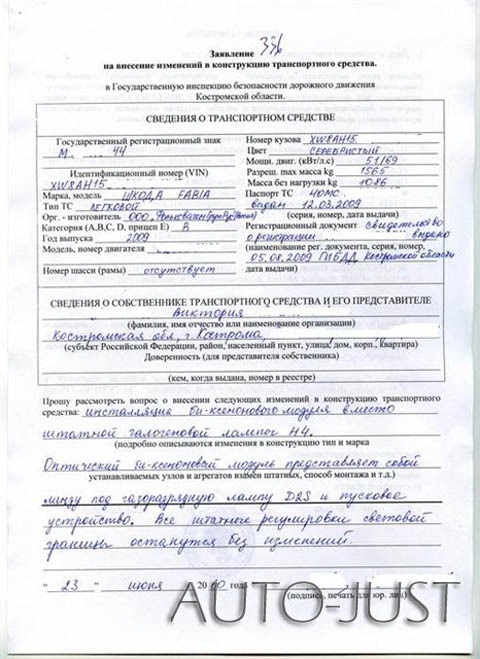 Заявление 336
на внесение изменений в конструкцию транспортного средства.
в Государственную инспекцию безопасности дорожного движения
Костромской области.
СВЕДЕНИЯ О ТРАНСПОРТНОМ СРЕДСТВЕ
Государственный регистрационный знак
М 44
Идентификационный номер (VIN)
XW8AH15
Марка, модель ШКОДА FABIA
Тип ТС легковой
Орг. - изготовитель ООО „Фольксваген Груп Рус"
Категория (А,В,С, D, прицеп Е) В
Год выпуска 2009
Модель, номер двигателя
Номер шасси (рамы) отсутствует
Номер кузова XW8AH15
Цвет СЕРЕБРИСТЫЙ
Мощн. двиг. (кВт/л.с) 51/69
Разреш. max масса kg 1565
Масса без нагрузки kg 1086
Паспорт ТС 40МС
выдан 12.03.2009
(серия, номер, дата выдачи)
Регистрационный документ свидетельство
о регистрации выдано
(наименование рег. документа, серия, номер,
05.08.2009 ГИБДД Костромской области
дата выдачи)
СВЕДЕНИЯ О СОБСТВЕННИКЕ ТРАНСПОРТНОГО СРЕДСТВА И ЕГО ПРЕДСТАВИТЕЛЕ
Виктория
(фамилия, имя отчество или наименование организации)
Костромская обл, г. Кострома,
(субъект Российской Федерации, район, населенный пункт, улица, дом, корп., квартира)
Доверенность (для представителя собственника)
(кем, когда выдана, номер в реестре)
Прошу рассмотреть вопрос о внесении следующих изменений в конструкцию транспортного
средства: инсталляция би-ксенонового модуля вместо
штатной галогеновой лампы H4.
(подробно описываются изменения в конструкцию тип и марка
Оптический би-ксеноновый модуль представляет собой
устанавливаемых узлов и агрегатов взамен штатных, способ монтажа и т.д.)
линзу под газоразрядную лампу D2S и пусковое
устройство. Все штатные регулировки световой
границы останутся без изменений.
"23" июня 2010 года
(подпись, печать для юр. лиц)
AUTO-JUST